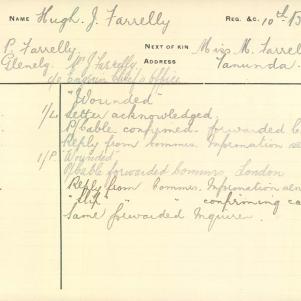 NAME Hugh. J. Farrelly REG. &C. 10th B
P. Farrelly NEXT OF KIN Miss M. Farrel
Glenelg. W J Farrelly ADDRESS Tanunda.
c/o Engineer Chief's Office
"Wounded
1/L Letter acknowledged
P/Cable confirmed. forwarded
Reply from Commrs. Information
1/P "Wounded"
P/Cable forwarded Commrs, London
Reply from Commrs. Information
" " confirming ca
Same forwarded Inquirer.